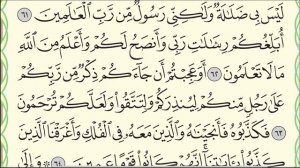 لَيْسَ بِى ضَلَٰلَةٌ وَلَٰكِنِّى رَسُولٌ مِّن رَّبِّ ٱلْعَٰلَمِينَ ٦١
أُبَلِّغُكُمْ رِسَٰلَٰتِ رَبِّى وَأَنصَحُ لَكُمْ وَأَعْلَمُ مِنَ ٱللَّهِ
مَا لَا تَعْلَمُونَ ٦٢ أَوَعَجِبْتُمْ أَن جَآءَكُمْ ذِكْرٌ مِّن رَّبِّكُمْ
عَلَىٰ رَجُلٍ مِّنكُمْ لِيُنذِرَكُمْ وَلِتَتَّقُوا۟ وَلَعَلَّكُمْ تُرْحَمُونَ ٦٣
فَكَذَّبُوهُ فَأَنجَيْنَٰهُ وَٱلَّذِينَ مَعَهُۥ فِى ٱلْفُلْكِ وَأَغْرَقْنَا ٱلَّذِينَ